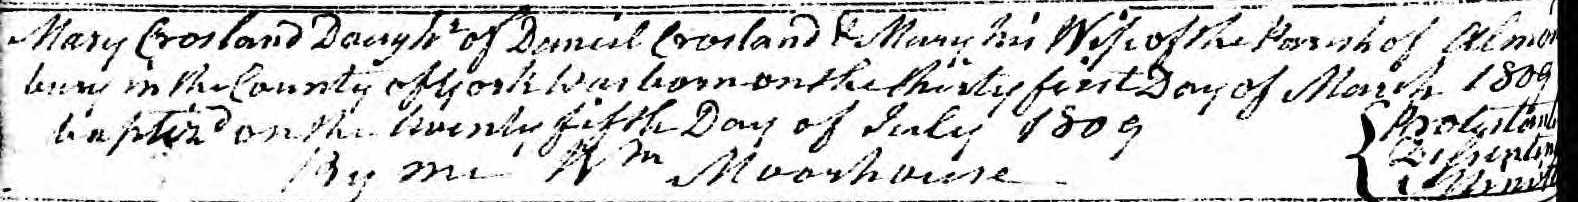 Mary Crosland Daughr of Daniel Crosland & Mary his Wife of the Parish of Almon
bury in the County of York Was born on the thirty first Day of March 1809
baptiz'd on the twenty fifth Day of July 1809
By me Wm Moorhouse
{ Protestant
Dissenting
Minist